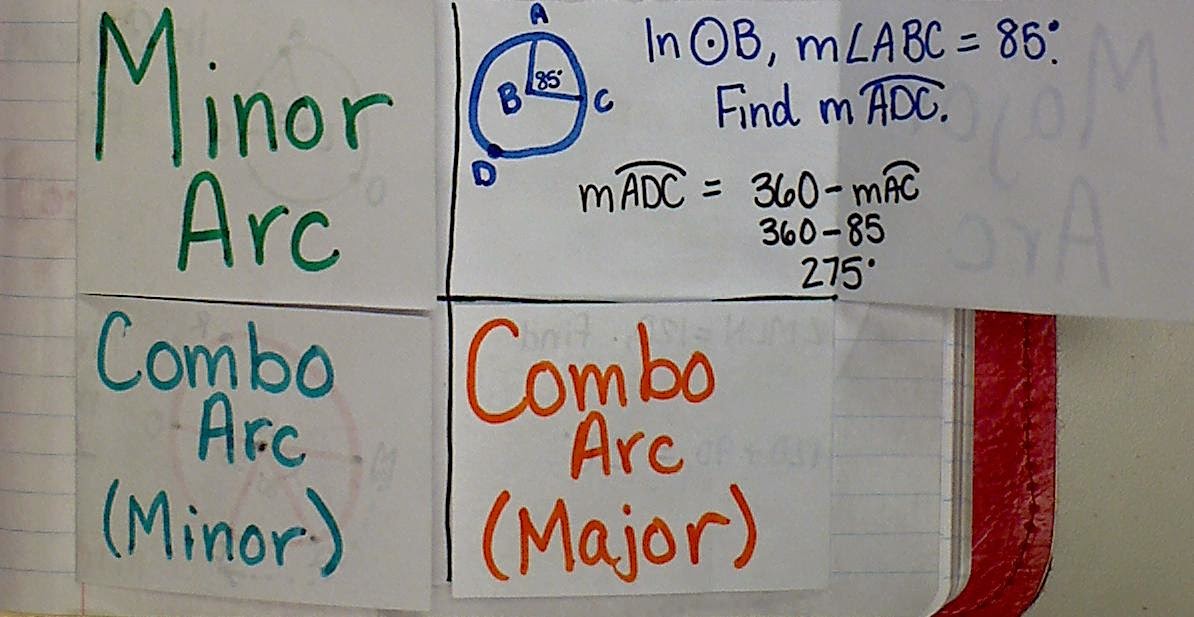 Minor
Arc
A
85°
B
C
D
In ⊙B, m∠ABC = 85°.
Find m⌒ADC.
m⌒ADC = 360 - m⌒AC
360 - 85
275°
Major
Arc
Combo
Arc
(Minor)
Combo
Arc
(Major)